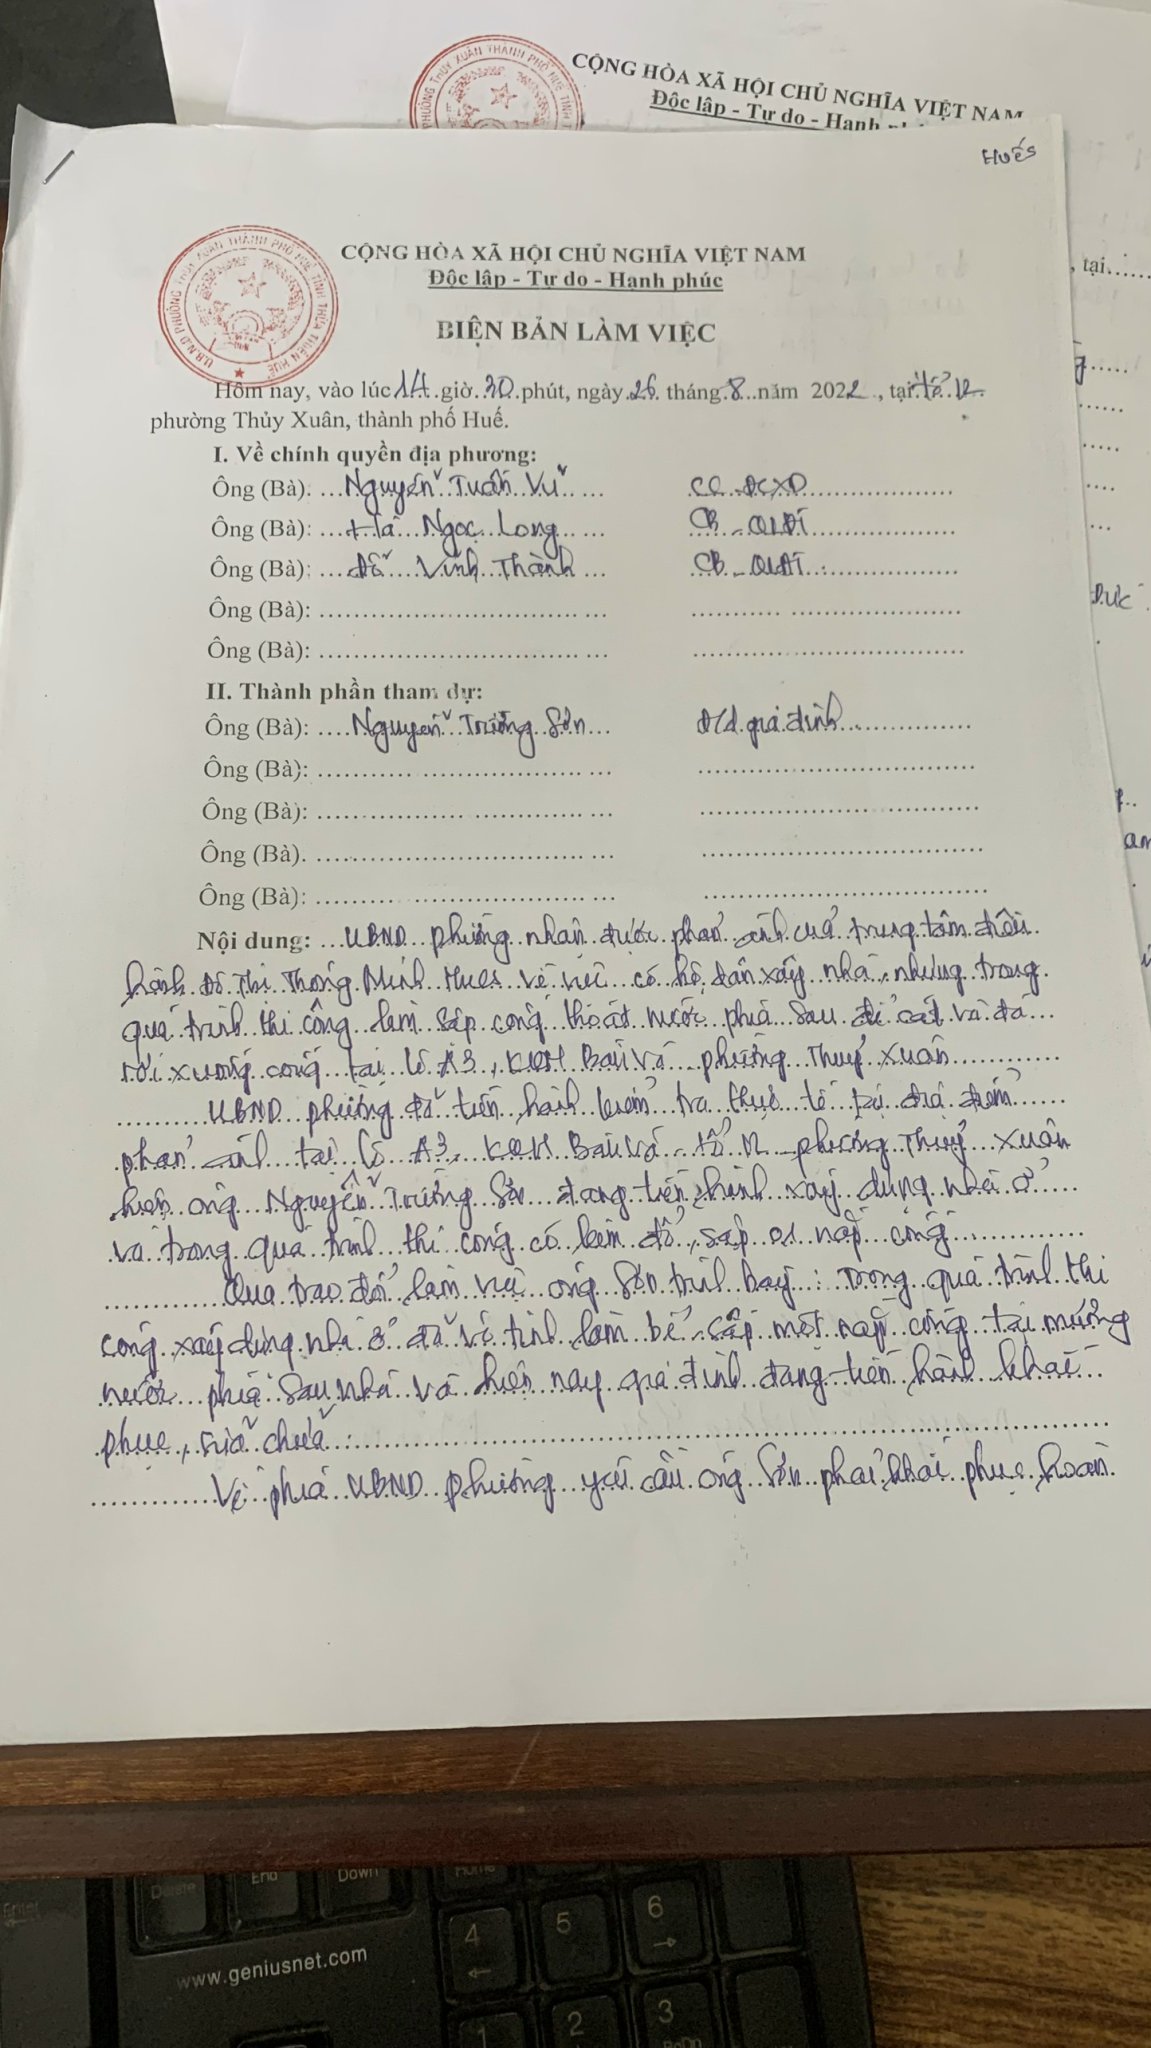 CỘNG HÒA XÃ HỘI CHỦ NGHĨA VIỆT NAM
Độc lập - Tự do - Hạnh
HuéS
CỘNG HÒA XÃ HỘI CHỦ NGHĨA VIỆT NAM
Độc lập - Tự do - Hạnh phúc
U.B.N.D PHƯỜNG THỦY XUÂN THÀNH PHỐ HUẾ TỈNH THỪA THIÊN HUẾ
BIÊN BẢN LÀM VIỆC
Hôm nay, vào lúc 14 giờ 30 phút, ngày 26 tháng 8 năm 2022, tại tổ 12
phường Thủy Xuân, thành phố Huế.
I. Về chính quyền địa phương:
Ông (Bà): Nguyễn Tuấn Vũ CC ĐCXD
Ông (Bà): Hà Ngọc Long CB - QLĐT
Ông (Bà): Đỗ Vĩnh Thành CB - QLĐT
Ông (Bà):
Ông (Bà):
II. Thành phần tham dự:
Ông (Bà): Nguyễn Trường Sơn Đ/d gia đình
Ông (Bà):
Ông (Bà):
Ông (Bà).
Ông (Bà):
Nội dung: UBND phường nhận được phản ánh của trung tâm điều
hành Đô Thị Thông Minh HueS về việc có hộ dân xây nhà, nhưng trong
quá trình thi công làm sập cống thoát nước phía sau để cát và đá
rơi xuống cống tại lô A3, KQH Bàu Vá phường Thuỷ Xuân
UBND phường đã tiến hành kiểm tra thực tế tại địa điểm
phản ánh tại lô A3, KQH Bàu Vá tổ 12 phường Thuỷ Xuân
hiện ông Nguyễn Trường Sơn đang tiến hành xây dựng nhà ở
và trong quá trình thi công có làm đổ, sập 01 nắp cống
Qua trao đổi, làm việc ông Sơn trình bày: Trong quá trình thi
công xây dựng nhà ở đã vô tình làm bể, sập một nắp cống tại mương
nước phía sau nhà và hiện nay gia đình đang tiến hành khắc
phục, sửa chữa.
Về phía UBND phường yêu cầu ông Sơn phải khắc phục hoàn
www.geniusnet.com
Delete
End
Down
Home
4
5
6
1
2
3
PgDn
Enter